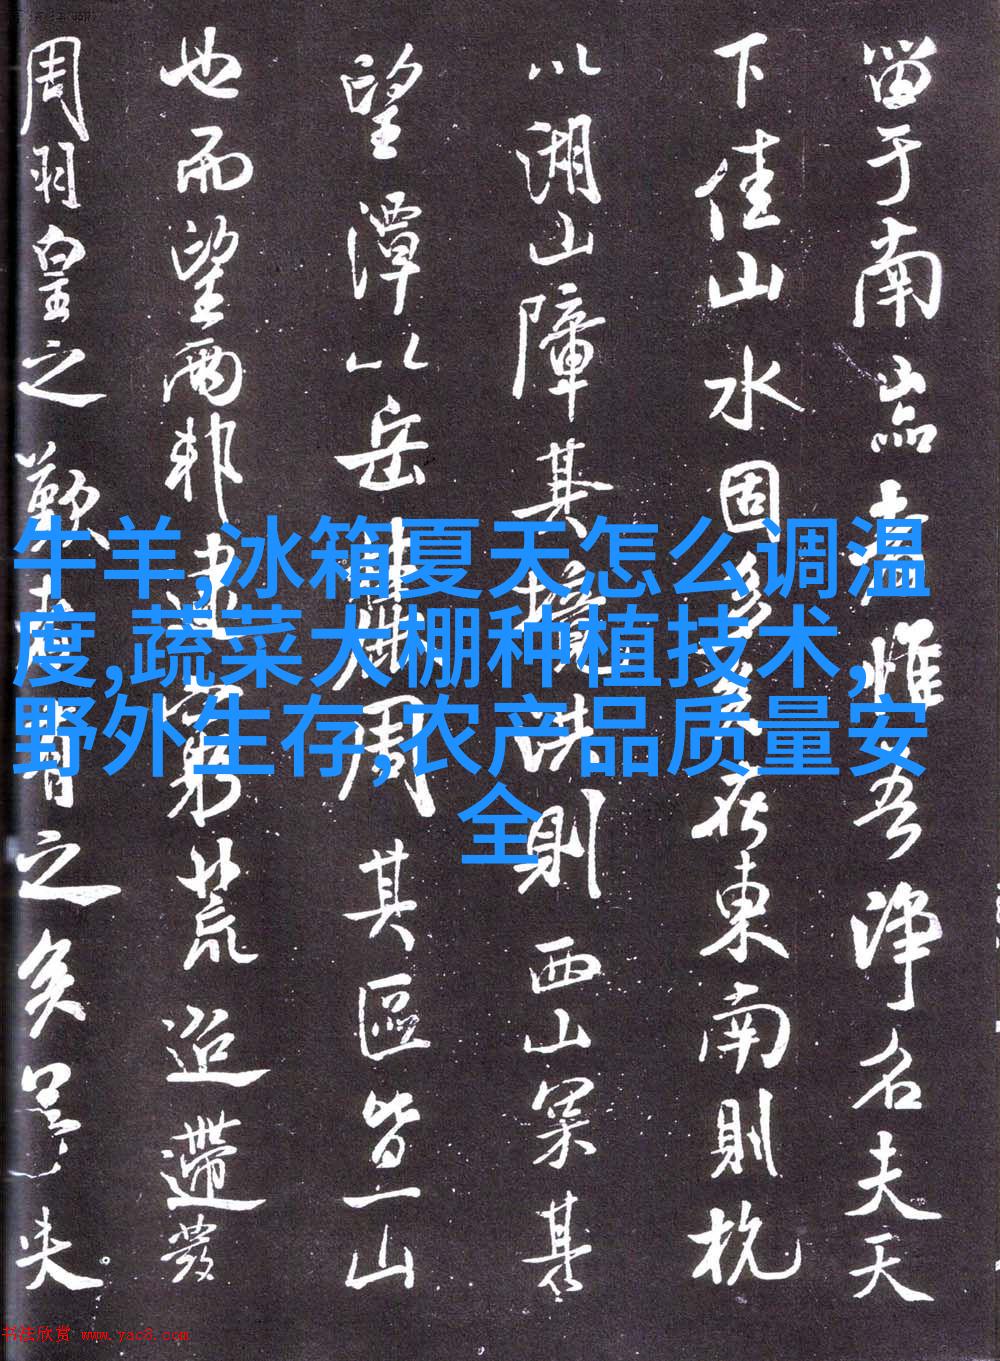 牛羊,冰箱夏天怎么调温
度,蔬菜大棚种植技术,
野外生存,农产品质量安
全
于南惟吾净名夫天
下佳山水固多矣在東南則杭
以湖山障其境洪則西山冥其
望潭以岳周其區皆一山
也而望兩荒迢遰發
周羽皇之歎之矣夫
书法欣赏 www.yac8.com